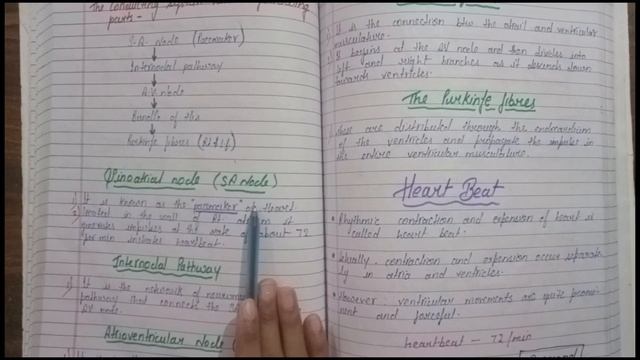 The conducting
parts -
S.A. Node (Pacemaker)
Internodal pathway
A.V node
Bundle of His
Purkinje fibres (Rt & Lf)
Sinoatrial node (SA Node)
1) It is known as the "pacemaker" of Heart.
2) located in the wall of Rt
impulses at the rate of about 72
per min initiates heartbeat.
Internodal Pathway
1) It is the network of
pathway that connects the
AV node.
Atrioventricular Node
1. It is the connection btw the atrail and ventricular
musculature.
2. It begins at the AV node and then divides into
left and right branches as it descends down
towards ventricles.
The Purkinje fibres
1. These are distributed through the endocardium
of the ventricles and propagate the impulse in
the entire ventricular musculature.
Heart Beat
Rhythmic contraction and expansion of heart is
called heart beat.
contraction and expansion occur separate-
ly in atria and ventricles.
However, ventricular movements are quite promi-
nent and forceful.
heartbeat - 72/min